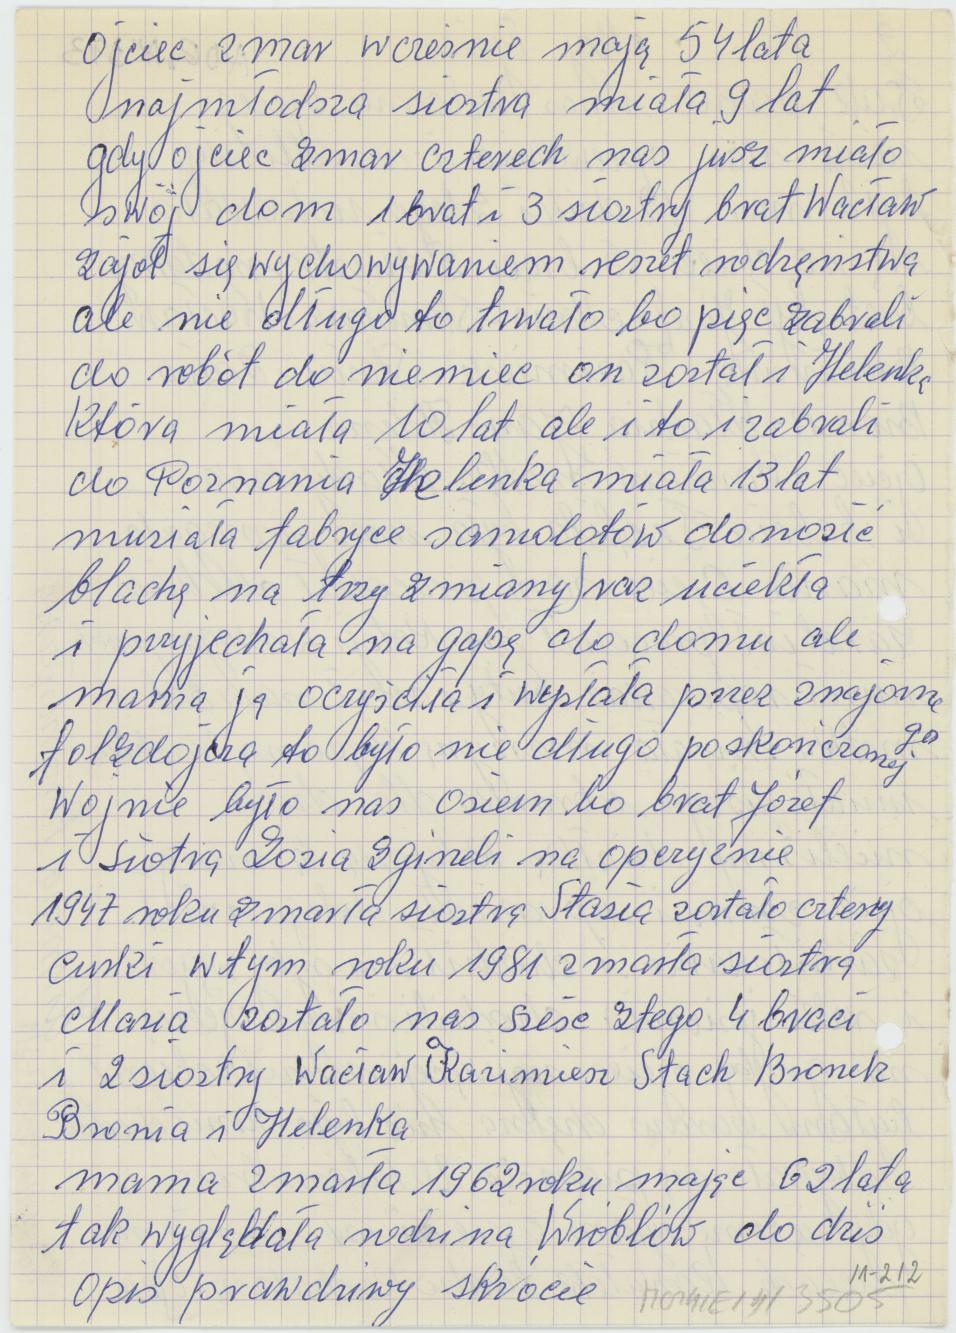 Ojciec zmar wcześnie mają 54 lata
najmłodsza siostra miała 9 lat
gdy ojciec zmar czterech nas jusz miało
swój dom 1 brat i 3 siostry brat Wacław
zajoł się wychowywaniem reszet rodzęnstwą
ale nie długo to trwało bo pięc zabrali
do robót do niemiec on został i Helenką
Która miała 10 lat ale i to i zabrali
do Poznania Helenka miała 13 lat
musiała fabryce samolotów donosić
blachę na trzy zmiany) raz uciekła
i przyjechała na gapę do domu ale
mamą ją oczyściła i wysłała przez znajomę
go
folzdojcza to było nie długo poskończonej
Wojnie było nas osiem bo brat Józef
i siotrą Zosia zgineli na operyznie
1947 roku zmarła siostrą Stasią zostało cztery
curki w tym roku 1981 zmarła siostrą
Maria zostało nas sześc ztego 4 braci
i 2 siostry Wacław Kazimiesz Stach Bronek
Bronia i Helenka
mama zmarła 1962 roku mając 62 latą
tak wyglądała rodzina Wróblów do dziś
opis prawdziwy skrócie
11-212
3505